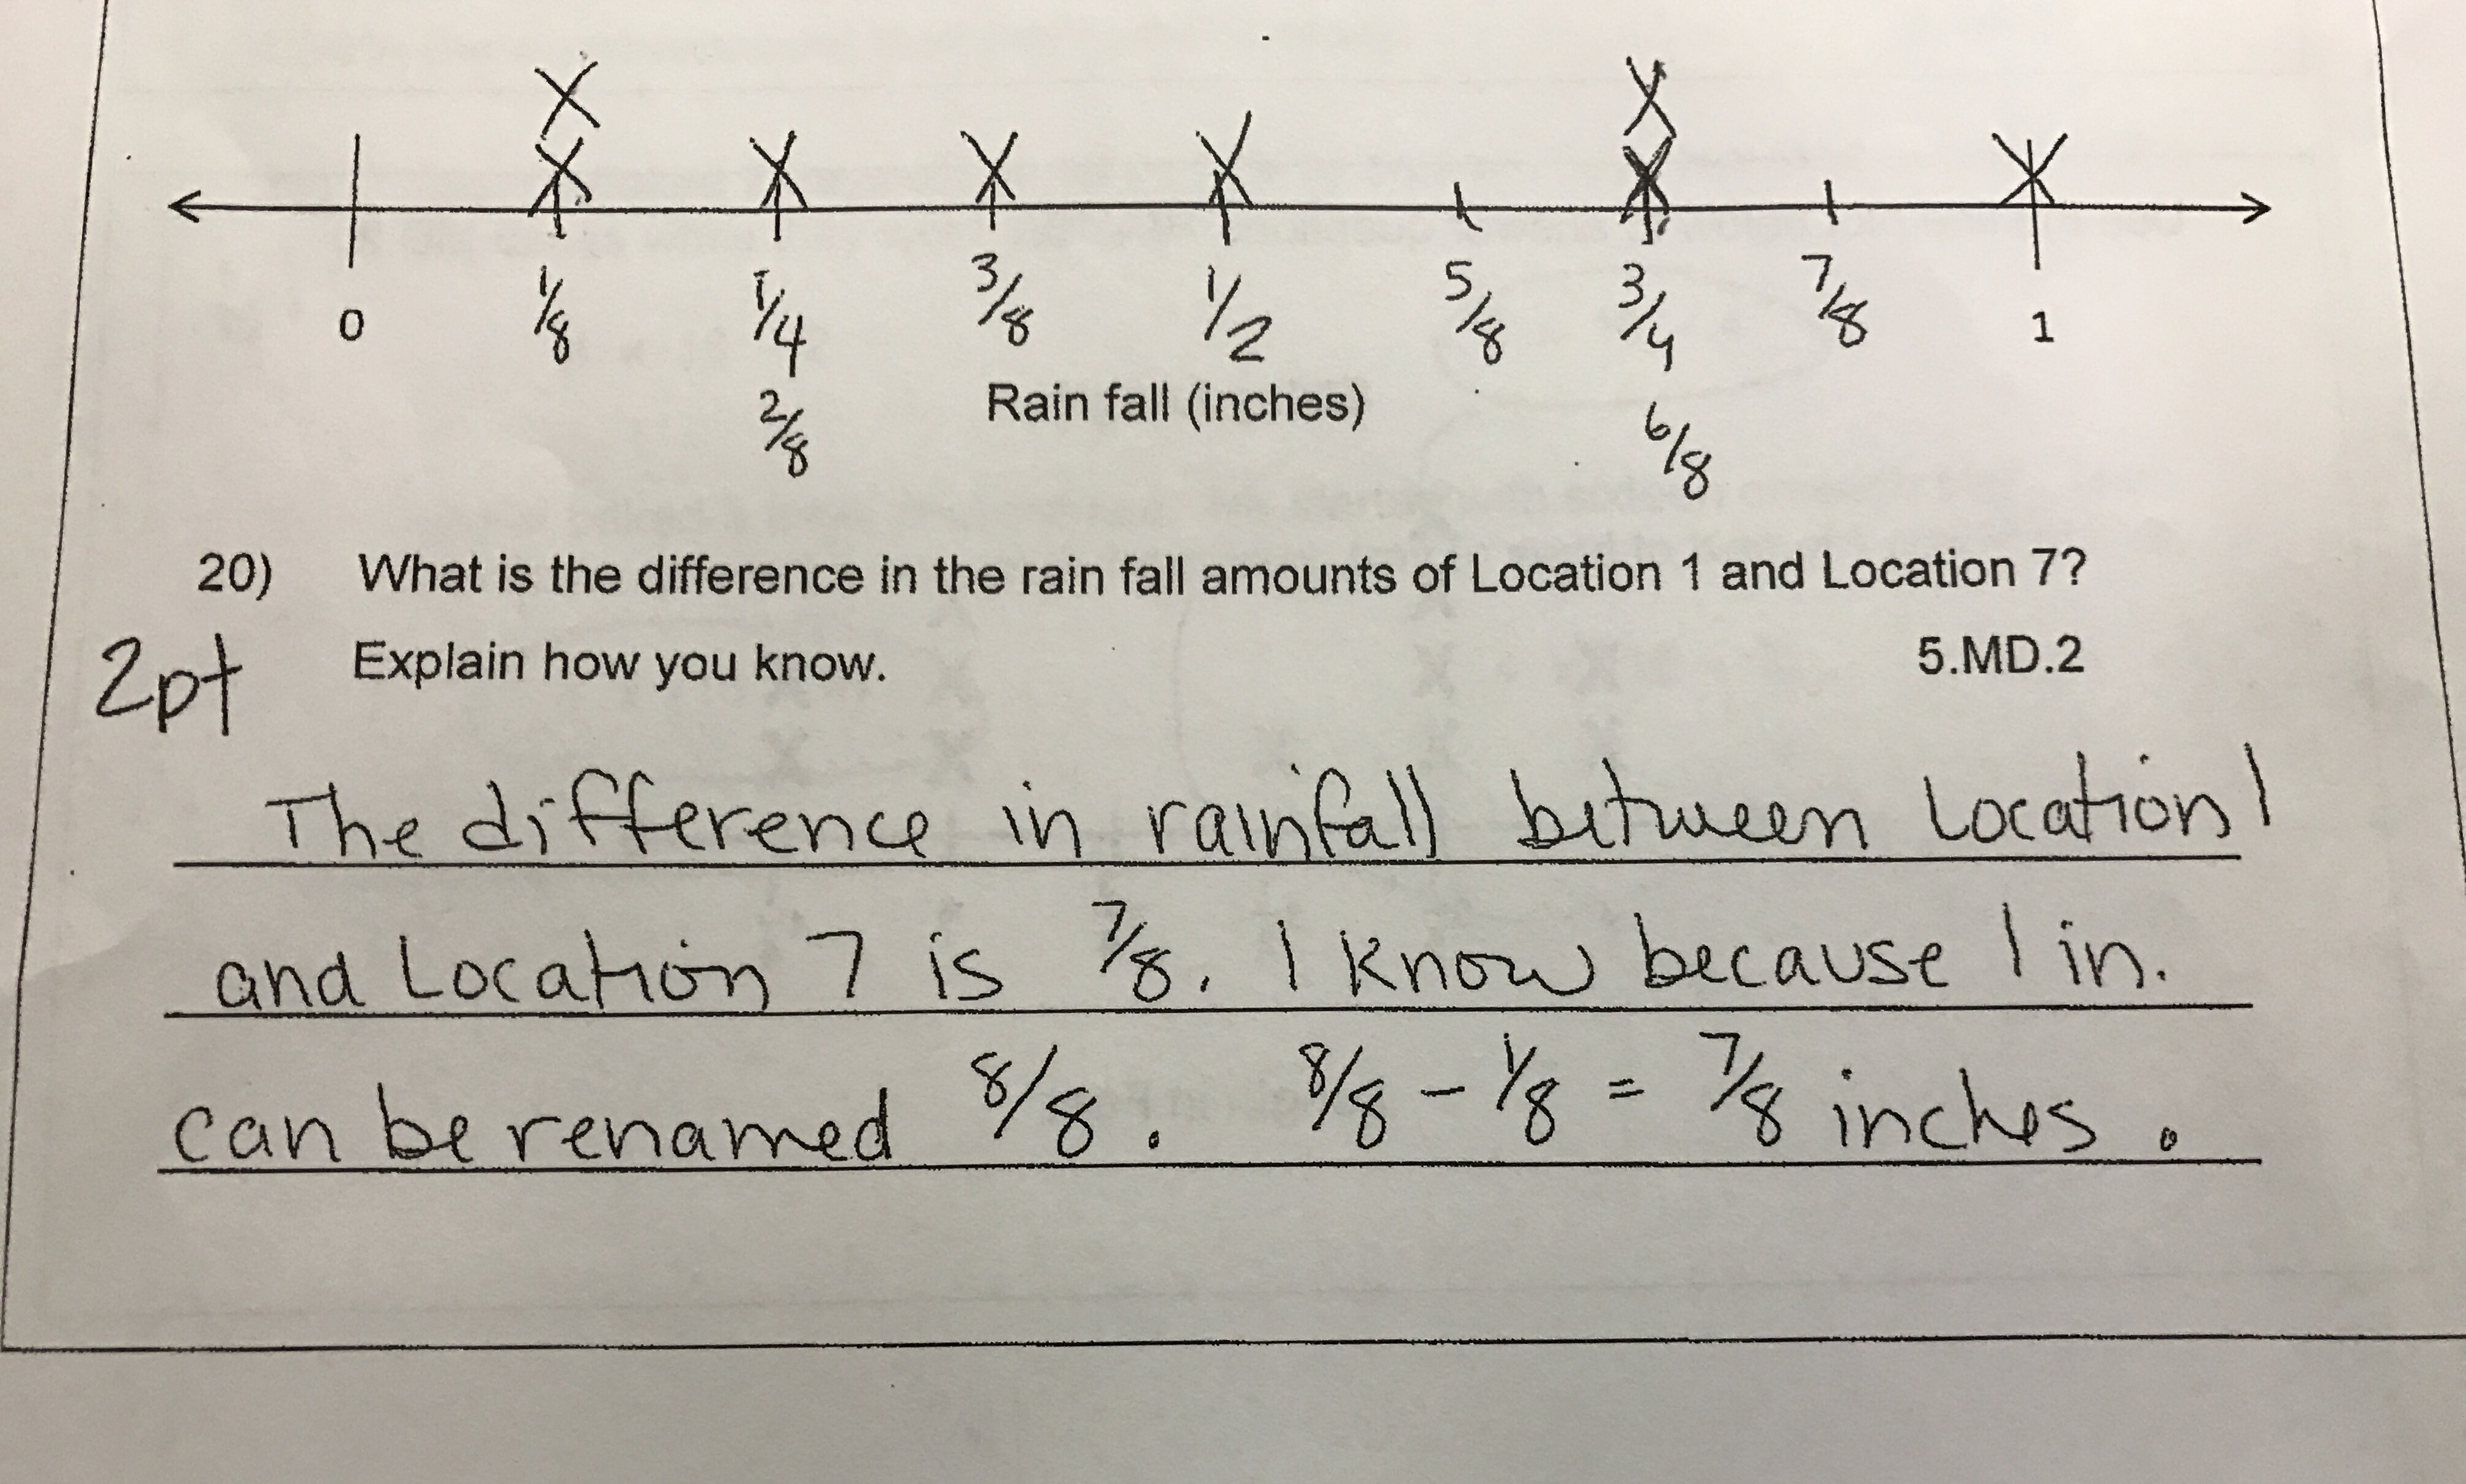 X X
X X X X X X
0 1/8 1/4 3/8 1/2 5/8 3/4 7/8 1
2/8 Rain fall (inches) 6/8
20) What is the difference in the rain fall amounts of Location 1 and Location 7?
2pt Explain how you know. 5.MD.2
The difference in rainfall between Location 1
and Location 7 is 7/8. I know because 1 in.
can be renamed 8/8. 8/8 - 1/8 = 7/8 inches.